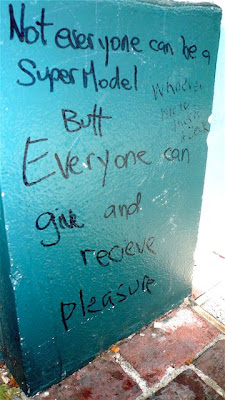 Not everyone can be a
SuperModel
Butt
Everyone can
give and
recieve
pleasure